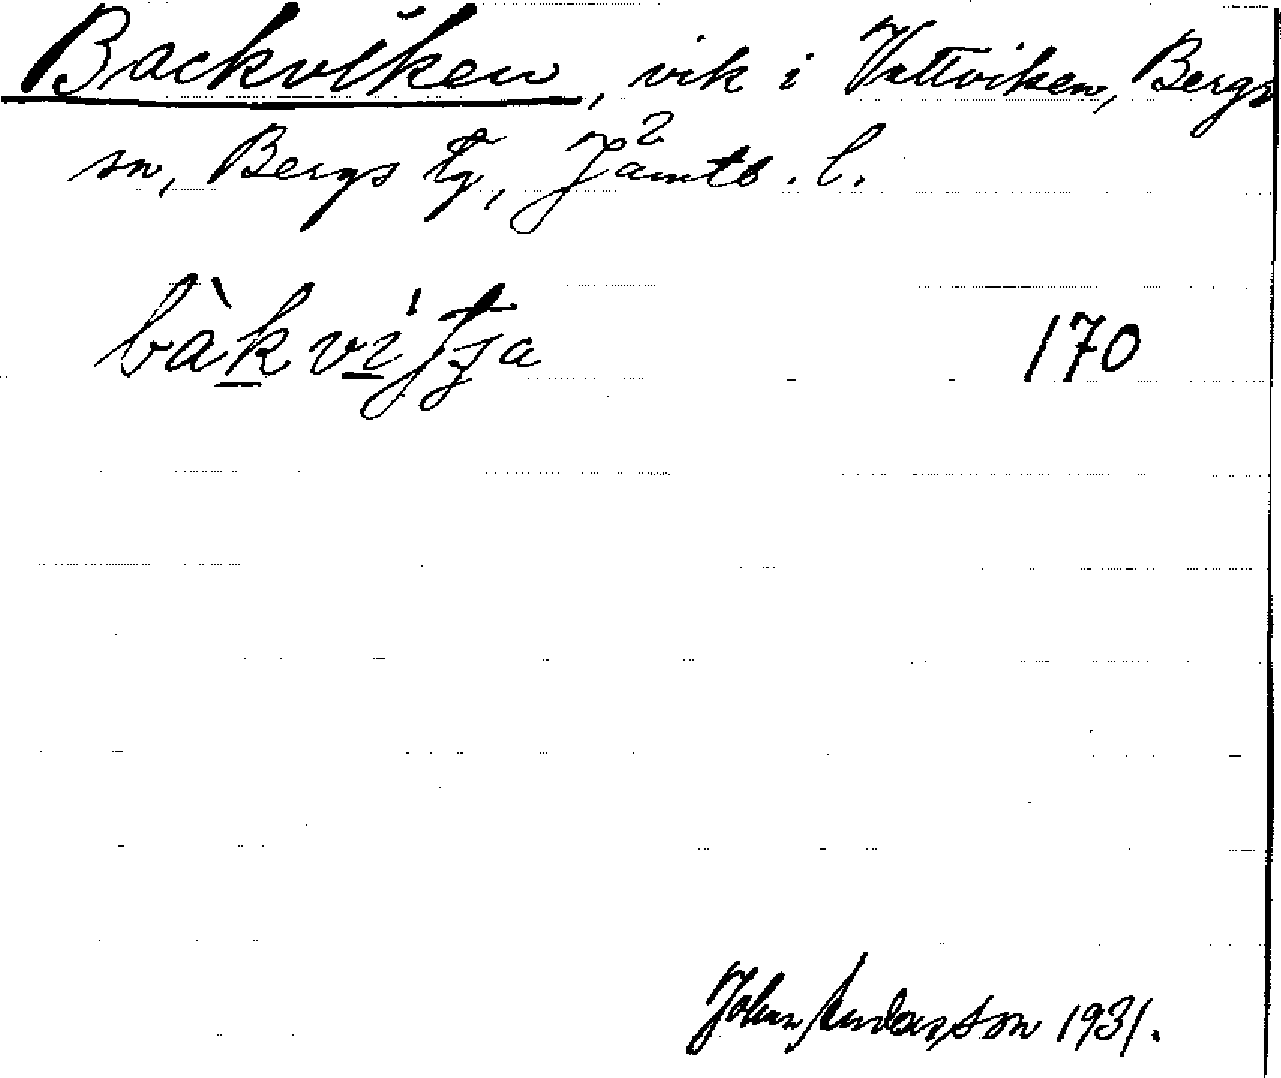 Backviken, vik i Vattviken, Bergs
sn, Bergs tg, Jämtl. l.
170
John Andersson 1931.